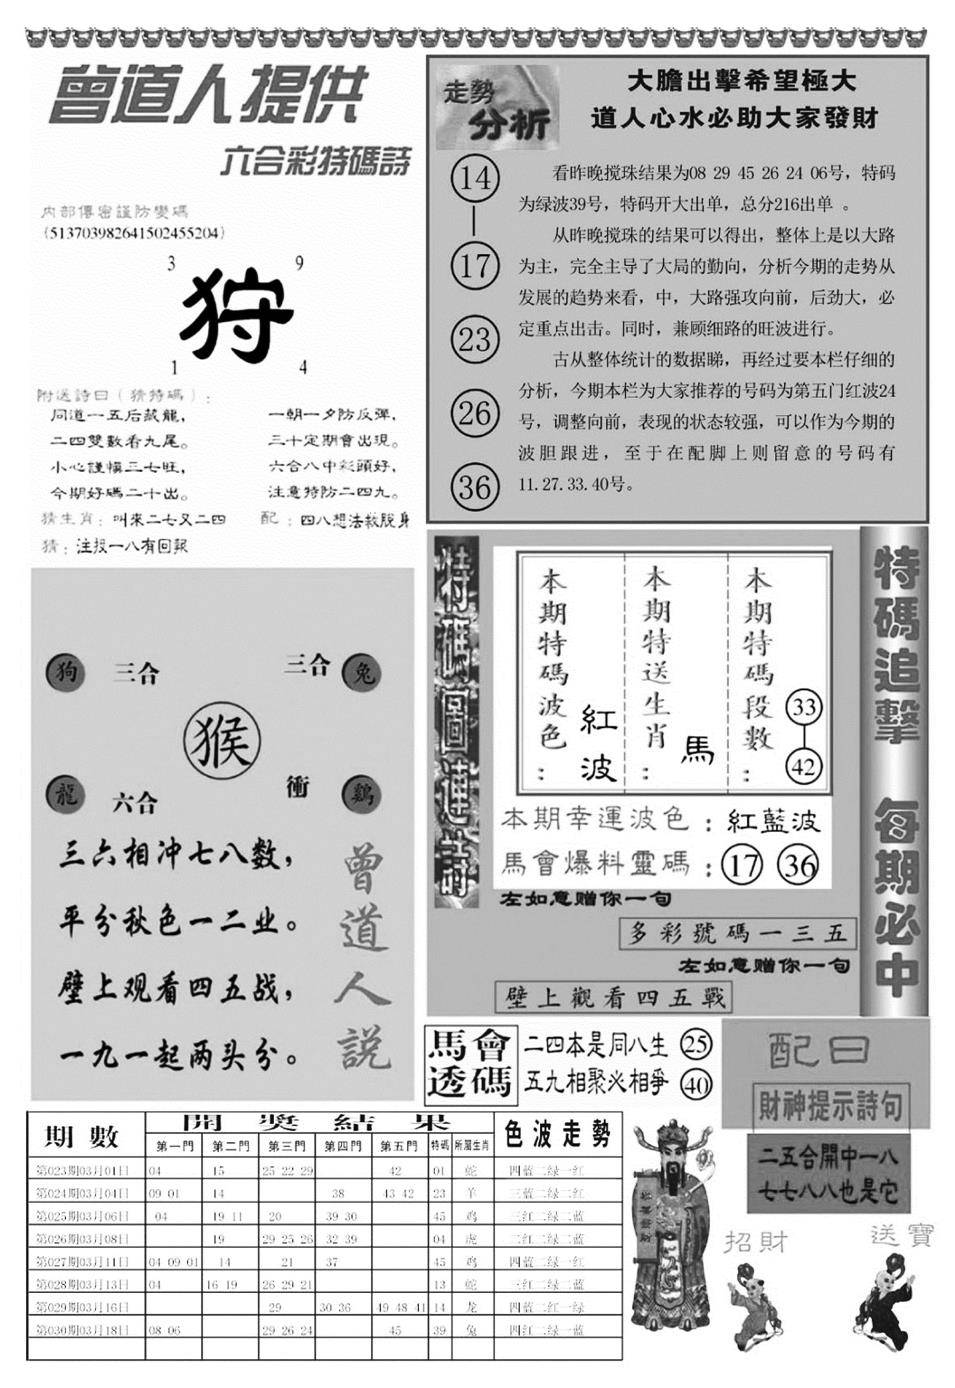 曾道人提供
六合彩特碼詩
內部傳密謹防變碼
(513703982641502455204)
3 9
狩
1 4
附送詩曰(猜特碼):
同道一五后藏龍, 一朝一夕防反彈,
二四雙數看九尾。 三十定期會出現。
小心謹慎三七旺, 六合八中彩頭好,
今期好碼二十出。 注意特防二四九。
猜生肖:叫來二七又二四 配:四八想法救脫身
猜:注投一八有回報
走勢
分析
大膽出擊希望極大
道人心水必助大家發財
14
17
23
26
36
看昨晚搅珠结果为08 29 45 26 24 06号,特码
为绿波39号,特码开大出单,总分216出单 。
从昨晚搅珠的结果可以得出,整体上是以大路
为主,完全主导了大局的勤向,分析今期的走势从
发展的趋势来看,中,大路强攻向前,后劲大,必
定重点出击。同时,兼顾细路的旺波进行。
古从整体统计的数据睇,再经过要本栏仔细的
分析,今期本栏为大家推荐的号码为第五门红波24
号,调整向前,表现的状态较强,可以作为今期的
波胆跟进,至于在配脚上则留意的号码有
11.27.33.40号。
狗 三合 三合 兔
猴
龍 六合 衝 鷄
三六相冲七八数,
平分秋色一二业。
壁上观看四五战,
一九一起两头分。
曾道人説
特碼圖連詩
本期特碼波色:
紅波
本期特送生肖:
馬
本期特碼段數:
33
42
本期幸運波色:紅藍波
馬會爆料靈碼:17 36
左如意赠你一句
多彩號碼一三五
左如意赠你一句
壁上觀看四五戰
特碼追擊 每期必中
馬會
透碼
二四本是同八生 25
五九相聚火相爭 40
配曰
財神提示詩句
二五合開中一八
七七八八也是它
招財
送寶
期數 開獎結果 色波走勢
第一門 第二門 第三門 第四門 第五門 特碼 所屬生肖
第023期03月01日 04 15 25 22 29 42 01 蛇 四蓝二绿一红
第024期03月04日 09 01 14 38 43 42 23 羊 三蓝二绿二红
第025期03月06日 04 19 11 20 39 30 45 鸡 三红二绿二蓝
第026期03月08日 19 29 25 26 32 39 04 虎 二红二绿三蓝
第027期03月11日 04 09 01 14 21 37 45 鸡 四蓝二绿一红
第028期03月13日 04 16 19 26 29 21 13 蛇 三红二绿二蓝
第029期03月16日 29 30 36 49 48 41 14 龙 四蓝二红一绿
第030期03月18日 08 06 29 26 24 45 39 兔 四红二绿一蓝